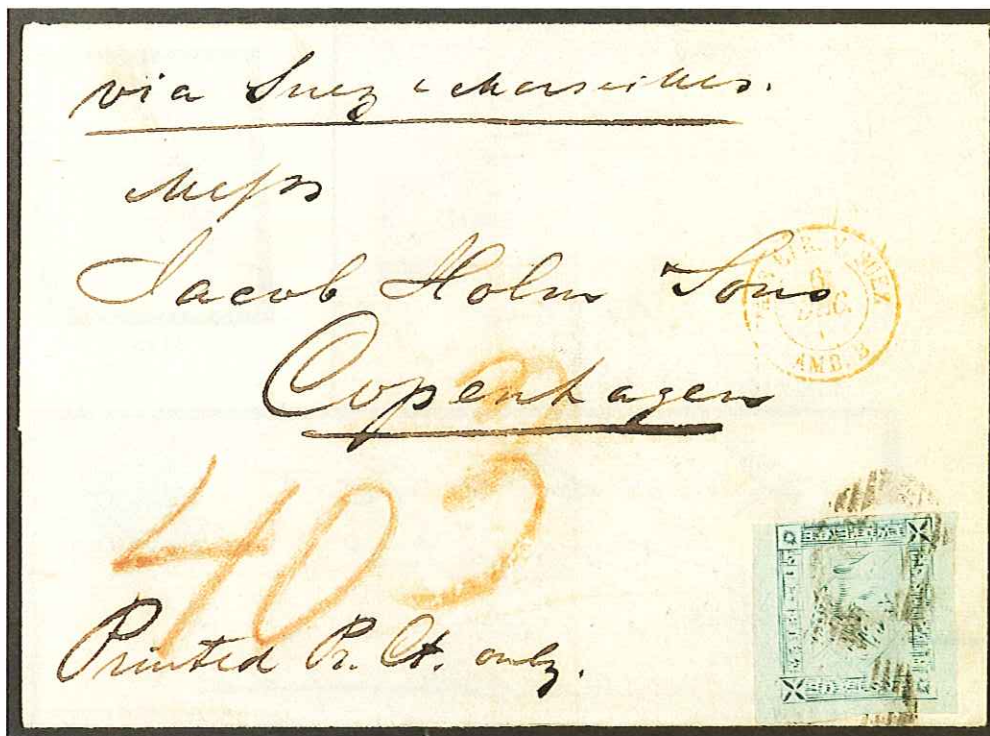 via Suez & Marseilles.
Messrs
Jacob Holm Sons
Copenhagen
6
DEC.
AMB. B
40
3
Printed Pr. Ct. only.